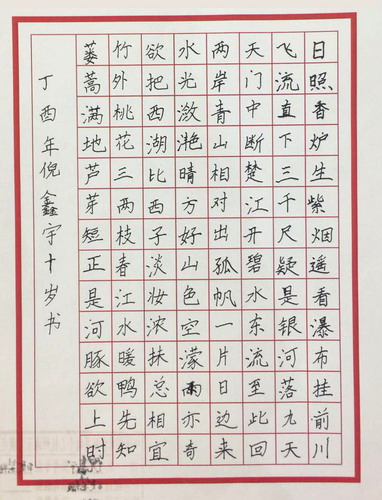 日照香炉生紫烟遥看瀑布挂前川
飞流直下三千尺疑是银河落九天
天门中断楚江开碧水东流至此回
两岸青山相对出孤帆一片日边来
水光潋滟晴方好山色空濛雨亦奇
欲把西湖比西子淡妆浓抹总相宜
竹外桃花三两枝春江水暖鸭先知
蒌蒿满地芦芽短正是河豚欲上时
丁酉年倪鑫宇十岁书